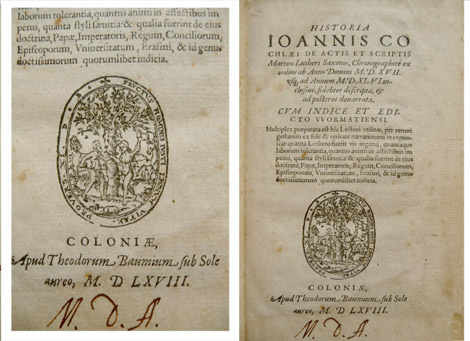 laborum tolerantia, quantus animi in affectibus im
petus, quanta styli sæuitia: & qualia fuerint de eius
doctrina, Papæ, Imperatoris, Regum, Conciliorum,
Episcoporum, Vniuersitatum, Erasmi, & id genus
doctissimorum quorumlibet iudicia.
FRVCTVS IVSTI LIGNVM VITAE. PROVERB.
COLONIÆ,
Apud Theodorum Baumium sub Sole
aureo, M. D LXVIII.
M. D. A.
HISTORIA
IOANNIS CO
CHLÆI DE ACTIS ET SCRIPTIS
Martini Lutheri Saxonis, Chronographicè ex
ordine ab Anno Domini M. D. XVII.
usq; ad Annum M. D. XLVI. in-
clusiuè, fideliter descripta, &
ad posteros denarrata,
CVM INDICE ET EDI-
CTO VVORMATIENSI.
Multiplex præparata est hîc Lectori vtilitas, per rerum
gestarum ex fide & veritate narrationem vt
cat quanta Luthero fuerit vis ingenij, quantaque
laborum tolerantia, quantus animi in affectibus im
petus, quanta styli sæuitia: & qualia fuerint de eius
doctrina, Papæ, Imperatoris, Regum, Conciliorum,
Episcoporum, Vniuersitatum, Erasmi, & id genus
doctissimorum quorumlibet iudicia.
COLONIÆ,
Apud Theodorum Baumium sub Sole
aureo, M. D LXVIII.
M. D. A.